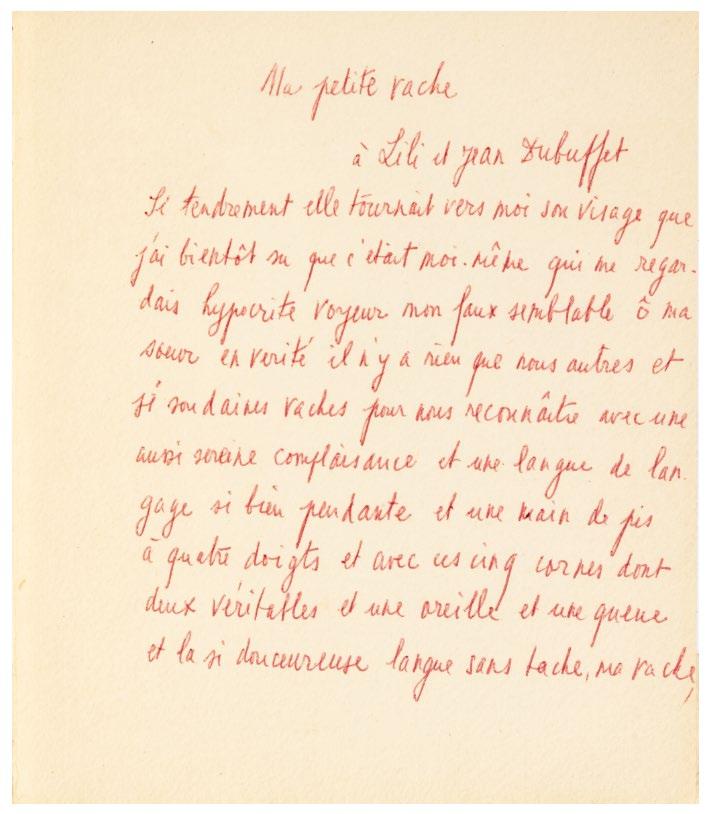 Ma petite vache
à Lili et Jean Dubuffet
Si tendrement elle tournait vers moi son visage que
j'ai bientôt su que c'était moi-même qui me regar-
dais hypocrite voyeur mon faux semblable ô ma
soeur en vérité il n'y a rien que nous autres et
si soudaines vaches pour nous reconnaître avec une
aussi sereine complaisance et une langue de lan-
gage si bien pendante et une main de pis
à quatre doigts et avec ces cinq cornes dont
deux véritables et une oreille et une queue
et la si douceureuse langue sans tache, ma vache,